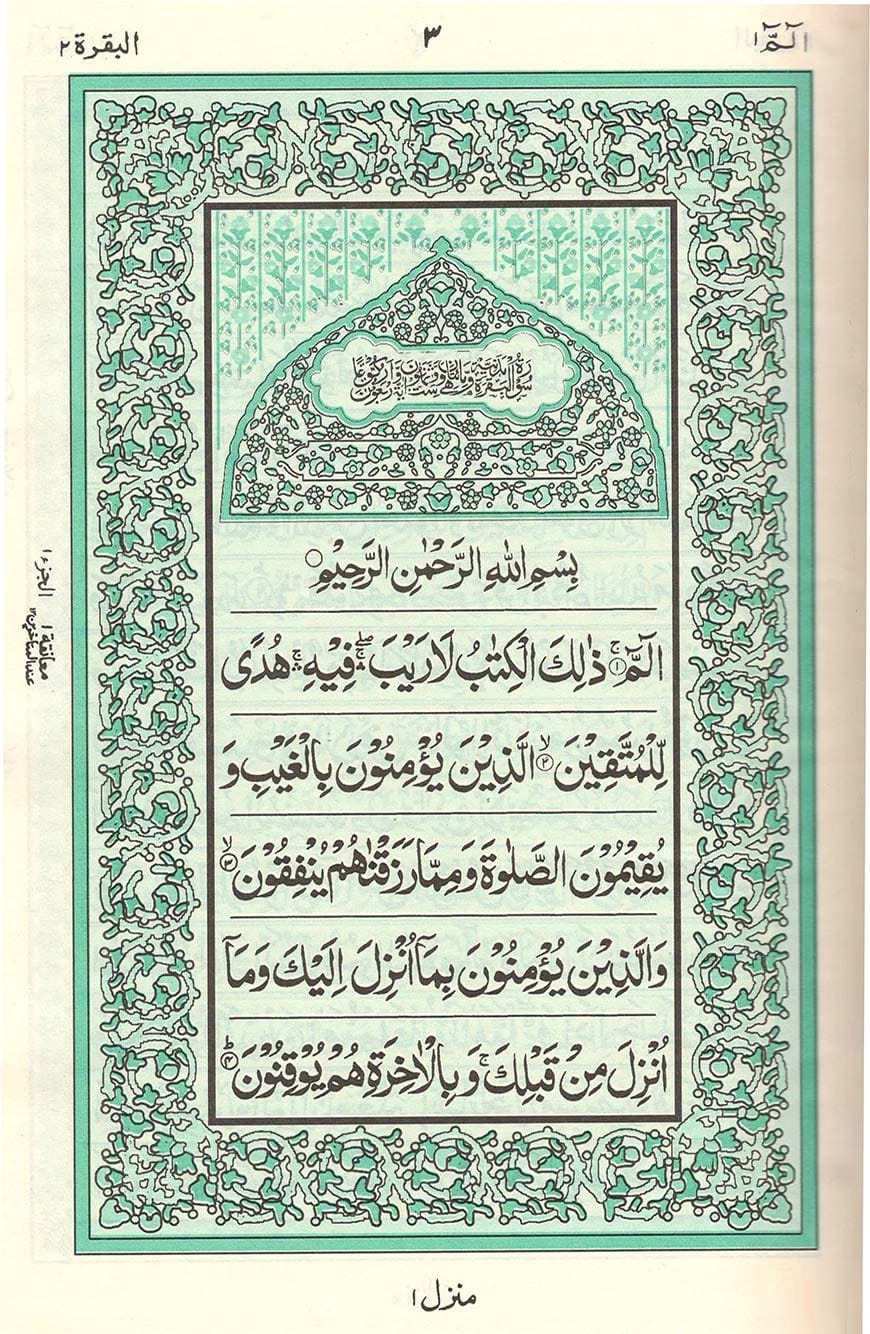 الٓمّٓ ١
٣
البقرة ٢
بِسْمِ اللّٰهِ الرَّحْمٰنِ الرَّحِيْمِ ○
الٓمّٓ ۚ﴿١﴾ ذٰلِكَ الْكِتٰبُ لَا رَيْبَ ۖۛۚ فِيْهِ ۛۚ هُدًى
لِّلْمُتَّقِيْنَ ۙ﴿٢﴾ الَّذِيْنَ يُؤْمِنُوْنَ بِالْغَيْبِ وَ
يُقِيْمُوْنَ الصَّلٰوةَ وَمِمَّا رَزَقْنٰهُمْ يُنْفِقُوْنَ ۙ﴿٣﴾
وَالَّذِيْنَ يُؤْمِنُوْنَ بِمَآ اُنْزِلَ اِلَيْكَ وَمَآ
اُنْزِلَ مِنْ قَبْلِكَ ۚ وَبِالْاٰخِرَةِ هُمْ يُوْقِنُوْنَ ؕ﴿٤﴾
معانقة ١ الجزء ١
عند المتاخرين ١٢
منزل ١